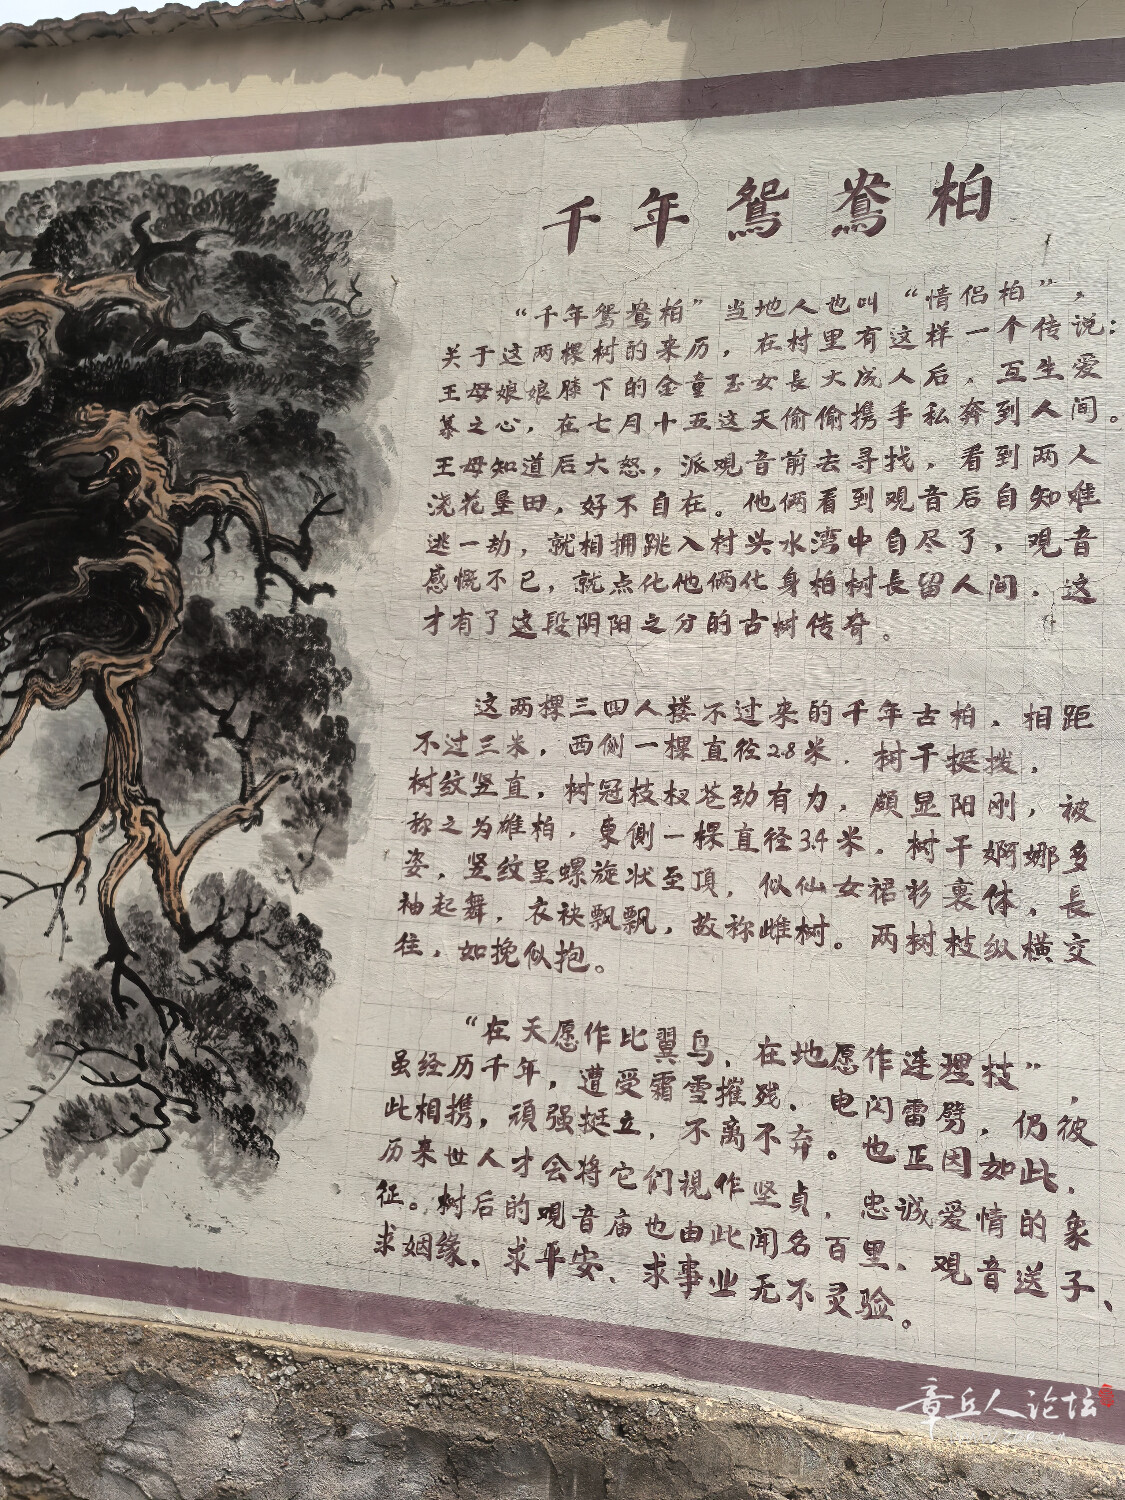 千年鴛鴦柏
“千年鸳鸯柏”当地人也叫“情侣柏”，
关于这两棵树的来历，在村里有这样一个传说：
王母娘娘膝下的金童玉女長大成人后，互生爱
慕之心，在七月十五这天偷偷携手私奔到人间。
王母知道后大怒，派观音前去寻找，看到两人
浇花垦田，好不自在。他俩看到观音后自知难
逃一劫，就相拥跳入村头水湾中自尽了，观音
感慨不已，就点化他俩化身柏树長留人间，这
才有了这段阴阳之分的古树传奇。
这两棵三四人搂不过来的千年古柏，相距
不过三米，西侧一棵直径2.8米，树干挺拨，
树纹竖直，树冠枝杈苍劲有力，颇显阳刚，被
称之为雄柏，東侧一棵直径3.4米，树干婀娜多
姿，竖纹呈螺旋状至頂，似仙女裙衫裹体，長
袖起舞，衣袂飘飘，故称雌树。两树枝纵横交
往，如挽似抱。
“在天愿作比翼鸟，在地愿作连理枝”，
虽经历千年，遭受霜雪摧残、电闪雷劈，仍彼
此相携，頑强挺立，不离不弃。也正因如此，
历来世人才会将它们視作坚贞，忠诚爱情的象
征。树后的观音庙也由此闻名百里，观音送子、
求姻缘、求平安、求事业无不灵验。
章丘人论坛